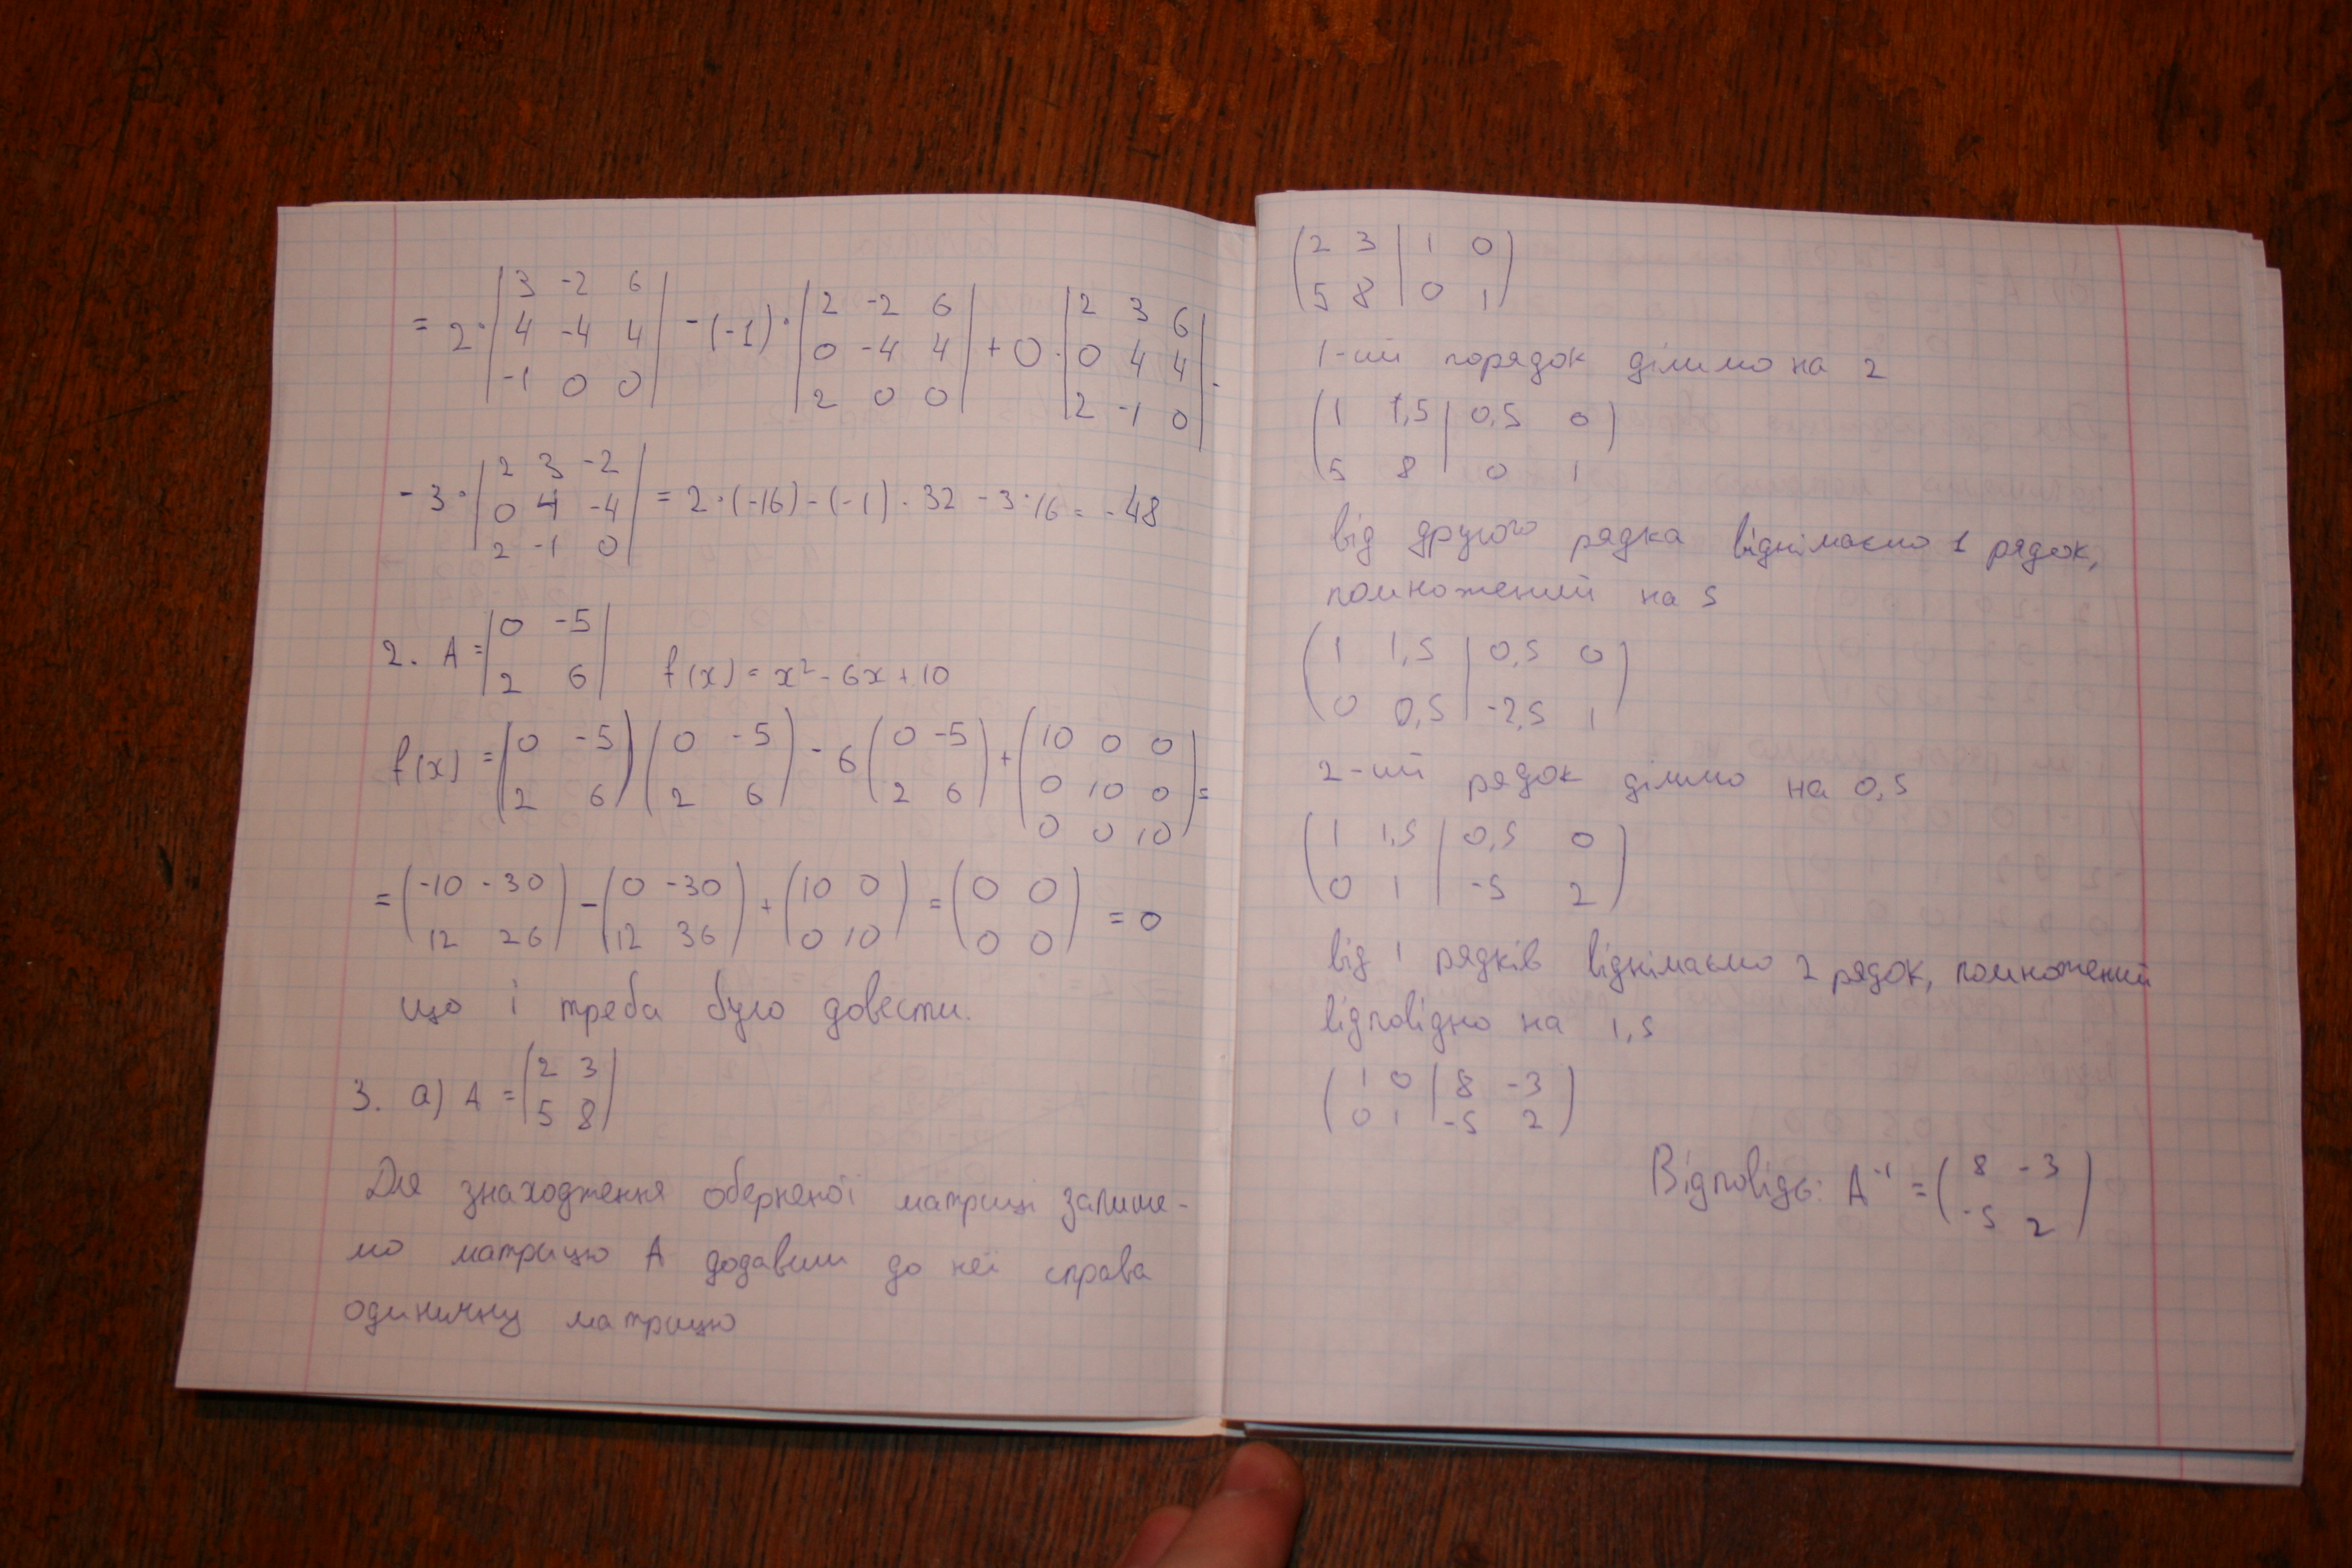 = 2 · | 3 -2 6 | - (-1) · | 2 -2 6 | + 0 · | 2 3 6 | -
| 4 -4 4 | | 0 -4 4 | | 0 4 4 |
| -1 0 0 | | 2 0 0 | | 2 -1 0 |
- 3 · | 2 3 -2 | = 2 · (-16) - (-1) · 32 - 3 · 16 = -48
| 0 4 -4 |
| 2 -1 0 |
2. A = | 0 -5 |
| 2 6 | f(x) = x² - 6x + 10
f(x) = ( 0 -5 ) ( 0 -5 ) - 6 ( 0 -5 ) + ( 10 0 0 ) =
( 2 6 ) ( 2 6 ) ( 2 6 ) ( 0 10 0 )
( 0 0 10 )
= ( -10 -30 ) - ( 0 -30 ) + ( 10 0 ) = ( 0 0 ) = 0
( 12 26 ) ( 12 36 ) ( 0 10 ) ( 0 0 )
що і треба було довести.
3. а) A = | 2 3 |
| 5 8 |
Для знаходження оберненої матриці запише-
мо матрицю А додавши до неї справа
одиничну матрицю
( 2 3 | 1 0 )
( 5 8 | 0 1 )
1-ий порядок ділимо на 2
( 1 1,5 | 0,5 0 )
( 5 8 | 0 1 )
від другого рядка віднімаємо 1 рядок,
помножений на 5
( 1 1,5 | 0,5 0 )
( 0 0,5 | -2,5 1 )
2-ий рядок ділимо на 0,5
( 1 1,5 | 0,5 0 )
( 0 1 | -5 2 )
від 1 рядків віднімаємо 2 рядок, помножений
відповідно на 1,5
( 1 0 | 8 -3 )
( 0 1 | -5 2 )
Відповідь: A⁻¹ = ( 8 -3 )
( -5 2 )